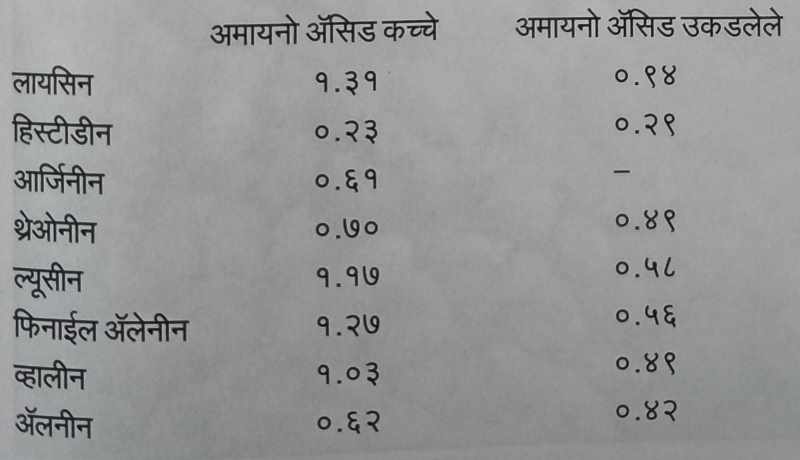 अमायनो ॲसिड कच्चे अमायनो ॲसिड उकडलेले
लायसिन १.३१ ०.९४
हिस्टीडीन ०.२३ ०.२९
आर्जिनीन ०.६१ –
थ्रेओनीन ०.७० ०.४९
ल्यूसीन १.१७ ०.५८
फिनाईल ॲलेनीन १.२७ ०.५६
व्हालीन १.०३ ०.४९
ॲलनीन ०.६२ ०.४२